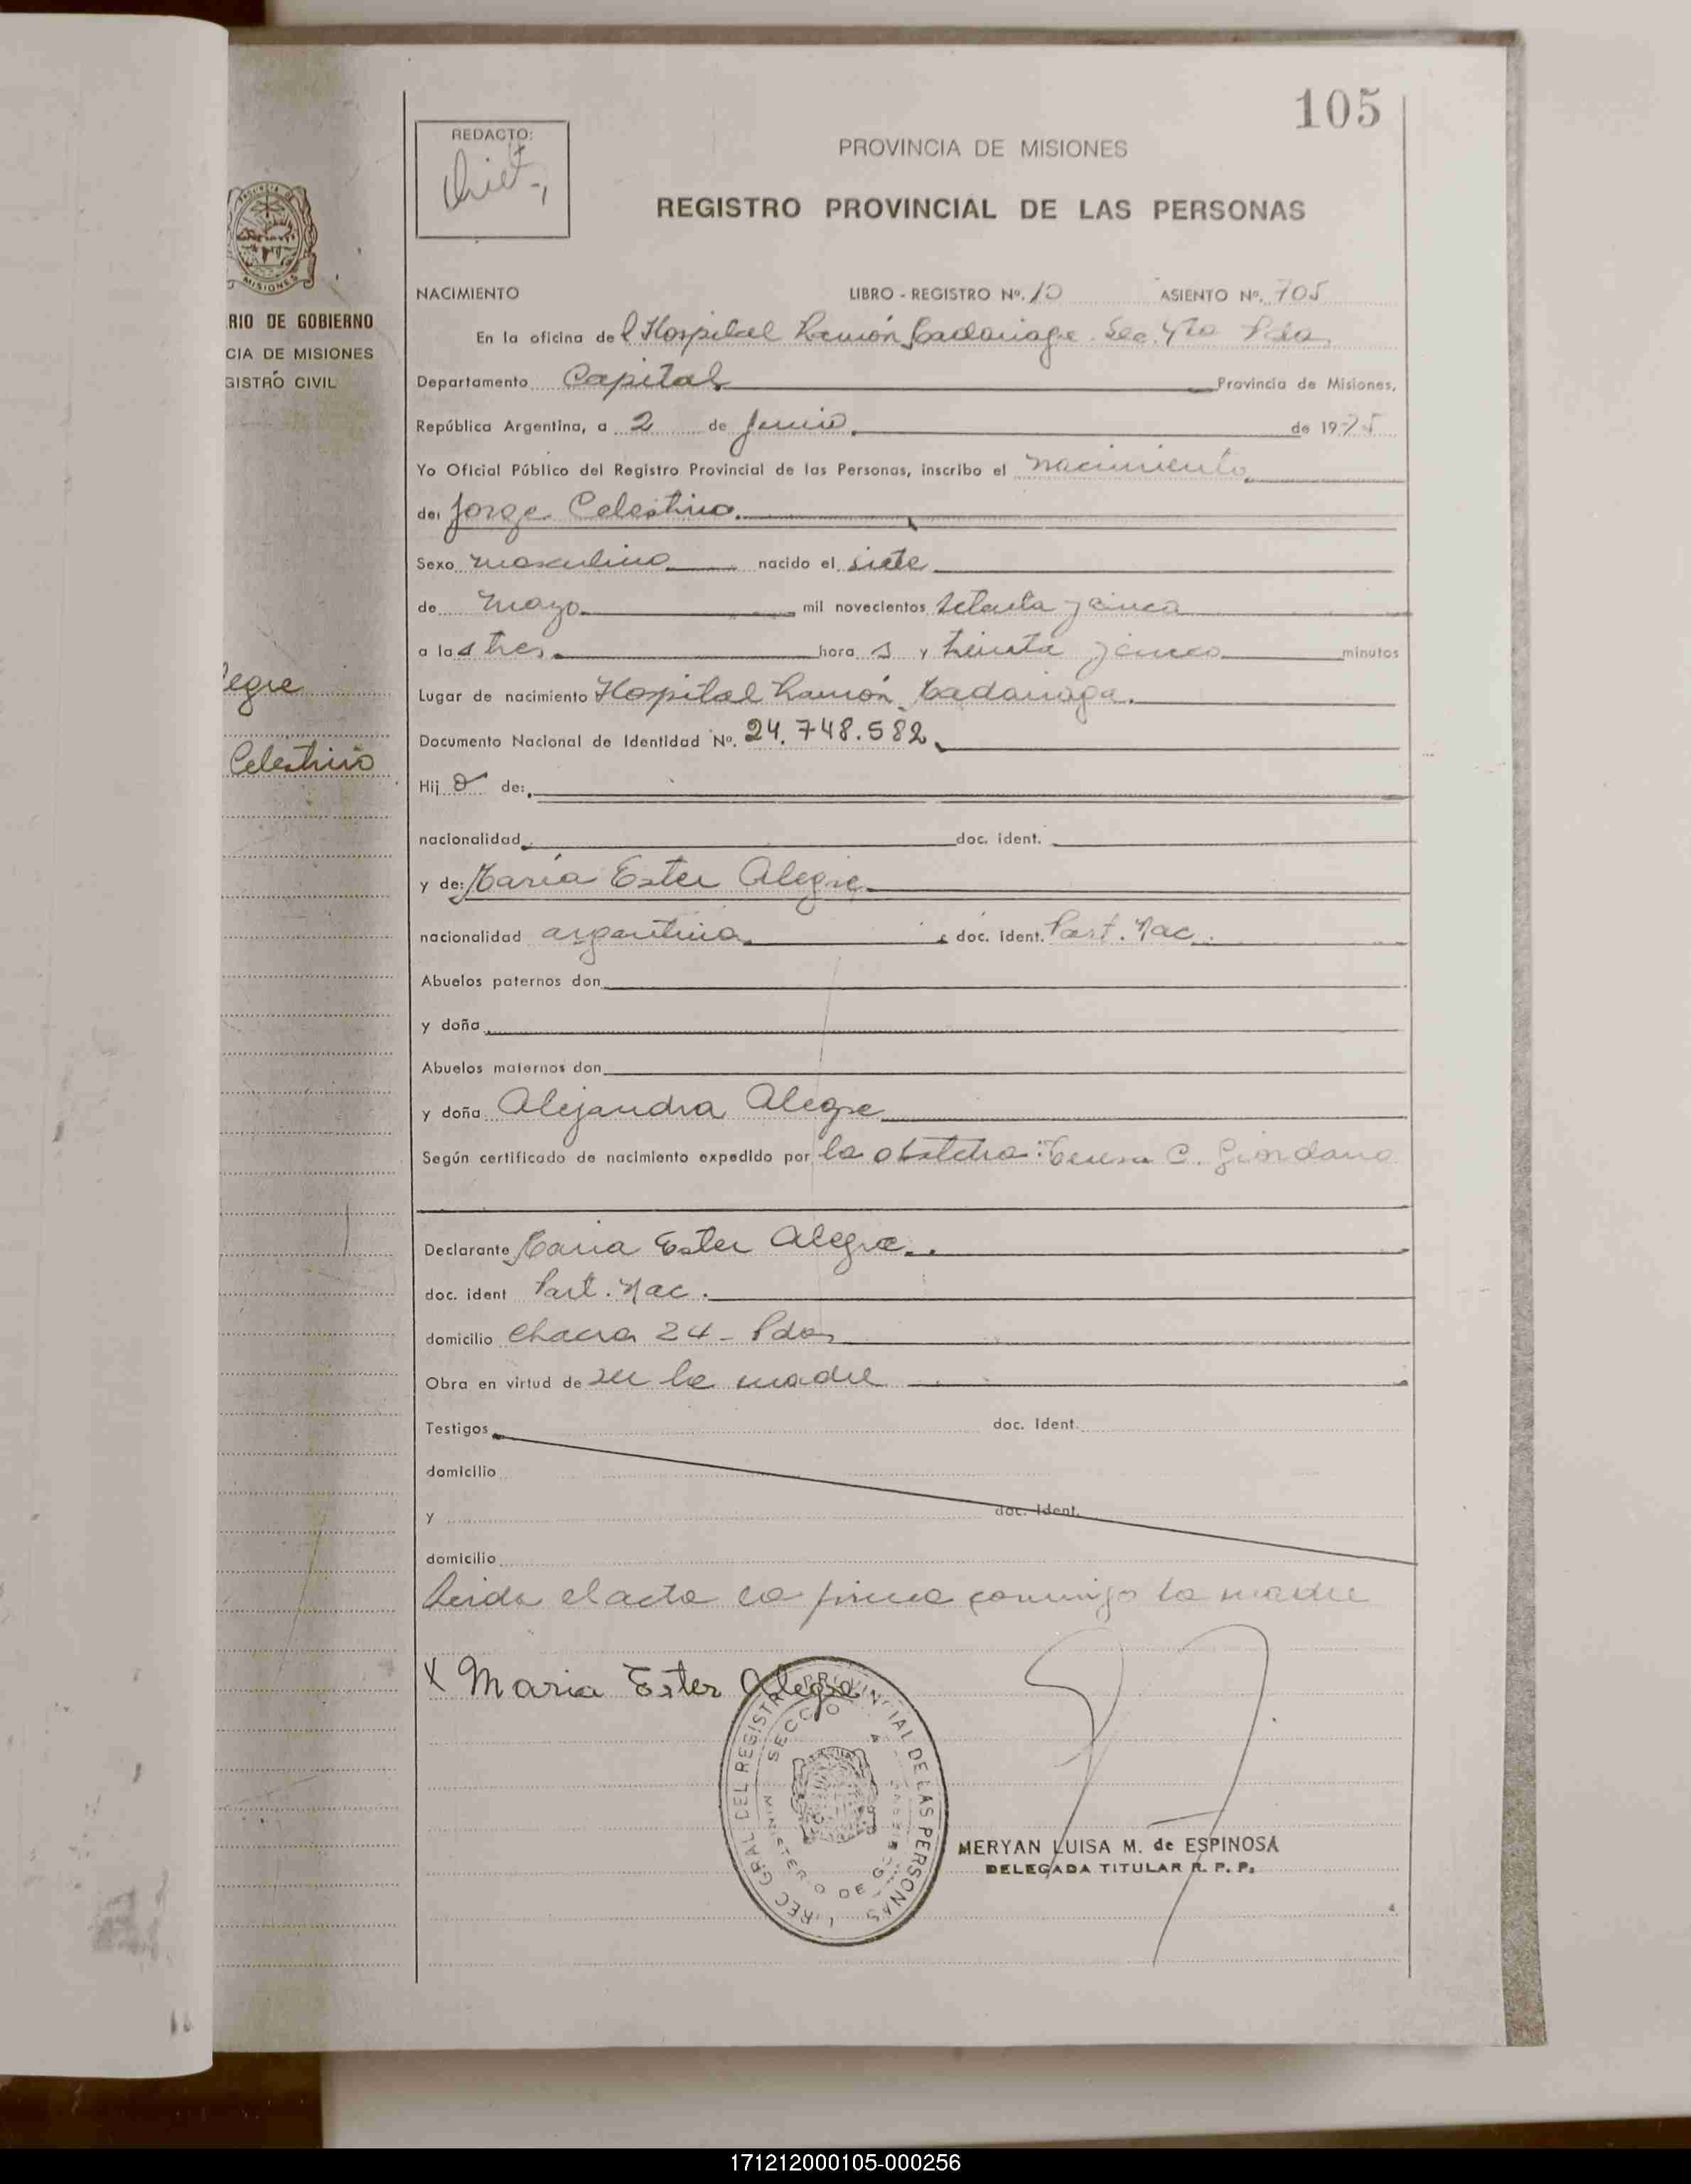 105
REDACTO:
PROVINCIA DE MISIONES
REGISTRO PROVINCIAL DE LAS PERSONAS
MISIONES
RIO DE GOBIERNO
CIA DE MISIONES
GISTRO CIVIL
legre
Celestino
NACIMIENTO LIBRO - REGISTRO Nº. 10 ASIENTO Nº. 705
En la oficina del Hospital Ramón Madariaga. Sec. 4ta Pdas
Departamento Capital Provincia de Misiones,
República Argentina, a 2 de Junio de 1975
Yo Oficial Público del Registro Provincial de las Personas, inscribo el nacimiento
de: Jorge Celestino
Sexo masculino nacido el siete
de mayo mil novecientos setenta y cinco
a las tres hora s y treinta y cinco minutos
Lugar de nacimiento Hospital Ramón Madariaga.
Documento Nacional de Identidad Nº. 24.748.582
Hijo de:
nacionalidad doc. ident.
y de: María Ester Alegre
nacionalidad argentina doc. ident. Part. Nac.
Abuelos paternos don
y doña
Abuelos maternos don
y doña Alejandra Alegre
Según certificado de nacimiento expedido por la obstetra: Teresa C. Giordano
Declarante María Ester Alegre.
doc. ident Part. Nac.
domicilio Chacra 24 - Pdas
Obra en virtud de ser la madre
Testigos doc. Ident.
domicilio
y doc. Ident.
domicilio
Leida el acta la firma conmigo la madre
X Maria Ester Alegre
DIREC GRAL DEL REGISTRO PROVINCIAL DE LAS PERSONAS
SECCIO 4
MINISTERIO DE GOBIERNO
MERYAN LUISA M. de ESPINOSA
DELEGADA TITULAR R. P. P.
171212000105-000256